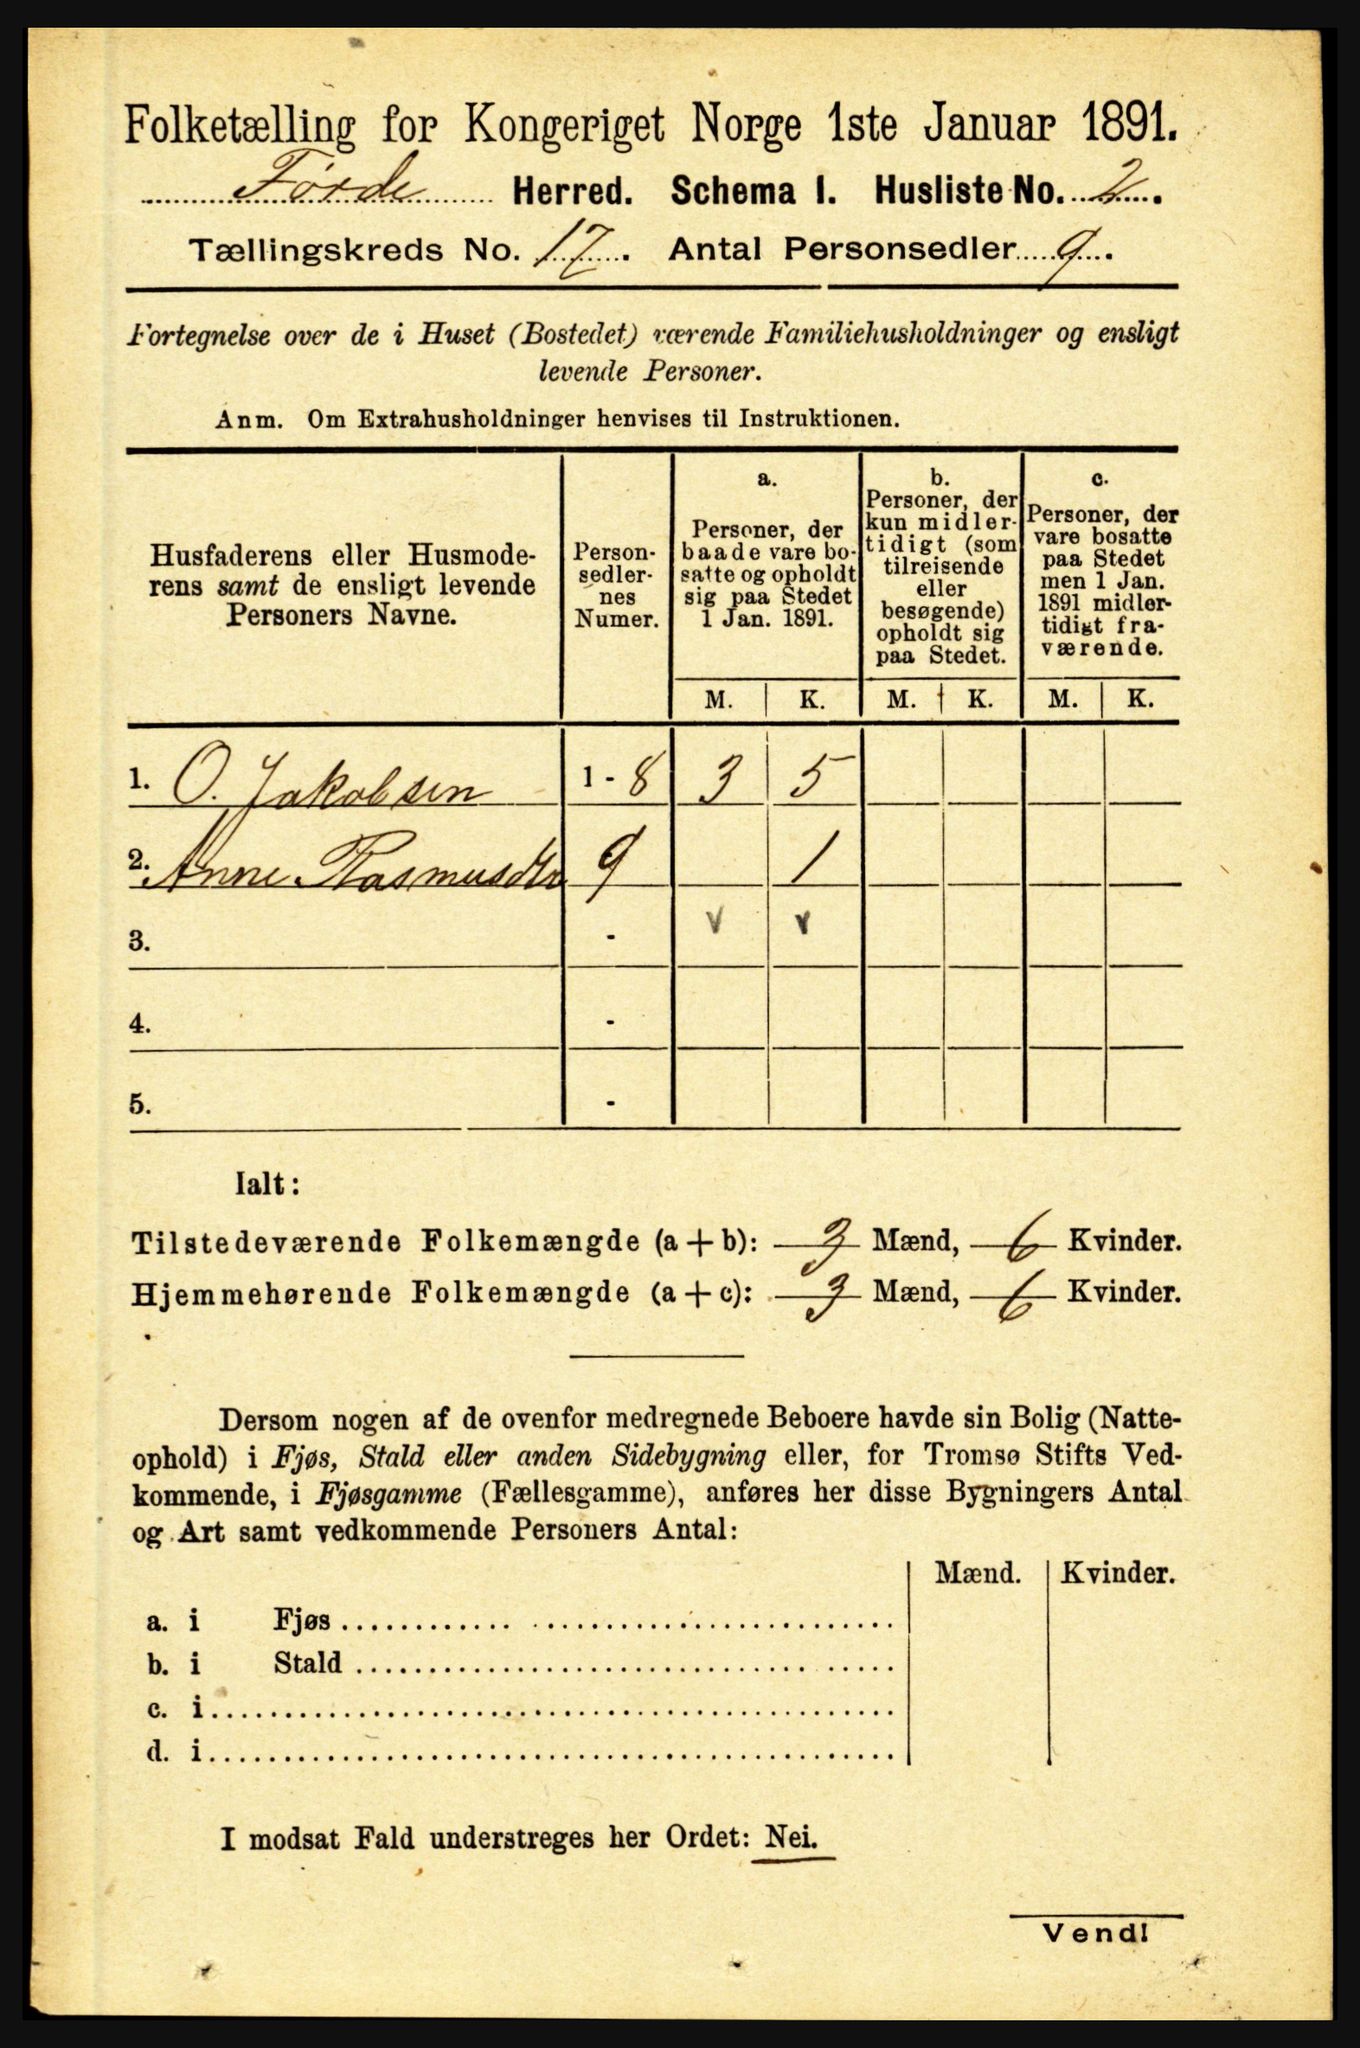 Folketælling for Kongeriget Norge 1ste Januar 1891.
Førde Herred. Schema I. Husliste No. 2.
Tællingskreds No. 17. Antal Personsedler 9.
Fortegnelse over de i Huset (Bostedet) værende Familiehusholdninger og ensligt
levende Personer.
Anm. Om Extrahusholdninger henvises til Instruktionen.
Husfaderens eller Husmode-
rens samt de ensligt levende
Personers Navne.
Person-
sedler-
nes
Numer.
a.
Personer, der
baade vare bo-
satte og opholdt
sig paa Stedet
1 Jan. 1891.
b.
Personer, der
kun midler-
tidigt (som
tilreisende
eller
besøgende)
opholdt sig
paa Stedet.
c.
Personer, der
vare bosatte
paa Stedet
men 1 Jan.
1891 midler-
tidigt fra-
værende.
M. K. M. K. M. K.
1. O. Jakobsen 1 - 8 3 5
2. Anne Rasmusdtr 9 1
3. - v v
4. -
5. -
Ialt:
Tilstedeværende Folkemængde (a + b): 3 Mænd, 6 Kvinder.
Hjemmehørende Folkemængde (a + c): 3 Mænd, 6 Kvinder.
Dersom nogen af de ovenfor medregnede Beboere havde sin Bolig (Natte-
ophold) i Fjøs, Stald eller anden Sidebygning eller, for Tromsø Stifts Ved-
kommende, i Fjøsgamme (Fællesgamme), anføres her disse Bygningers Antal
og Art samt vedkommende Personers Antal:
Mænd. Kvinder.
a. i Fjøs
b. i Stald
c. i
d. i
I modsat Fald understreges her Ordet: Nei.
Vend!